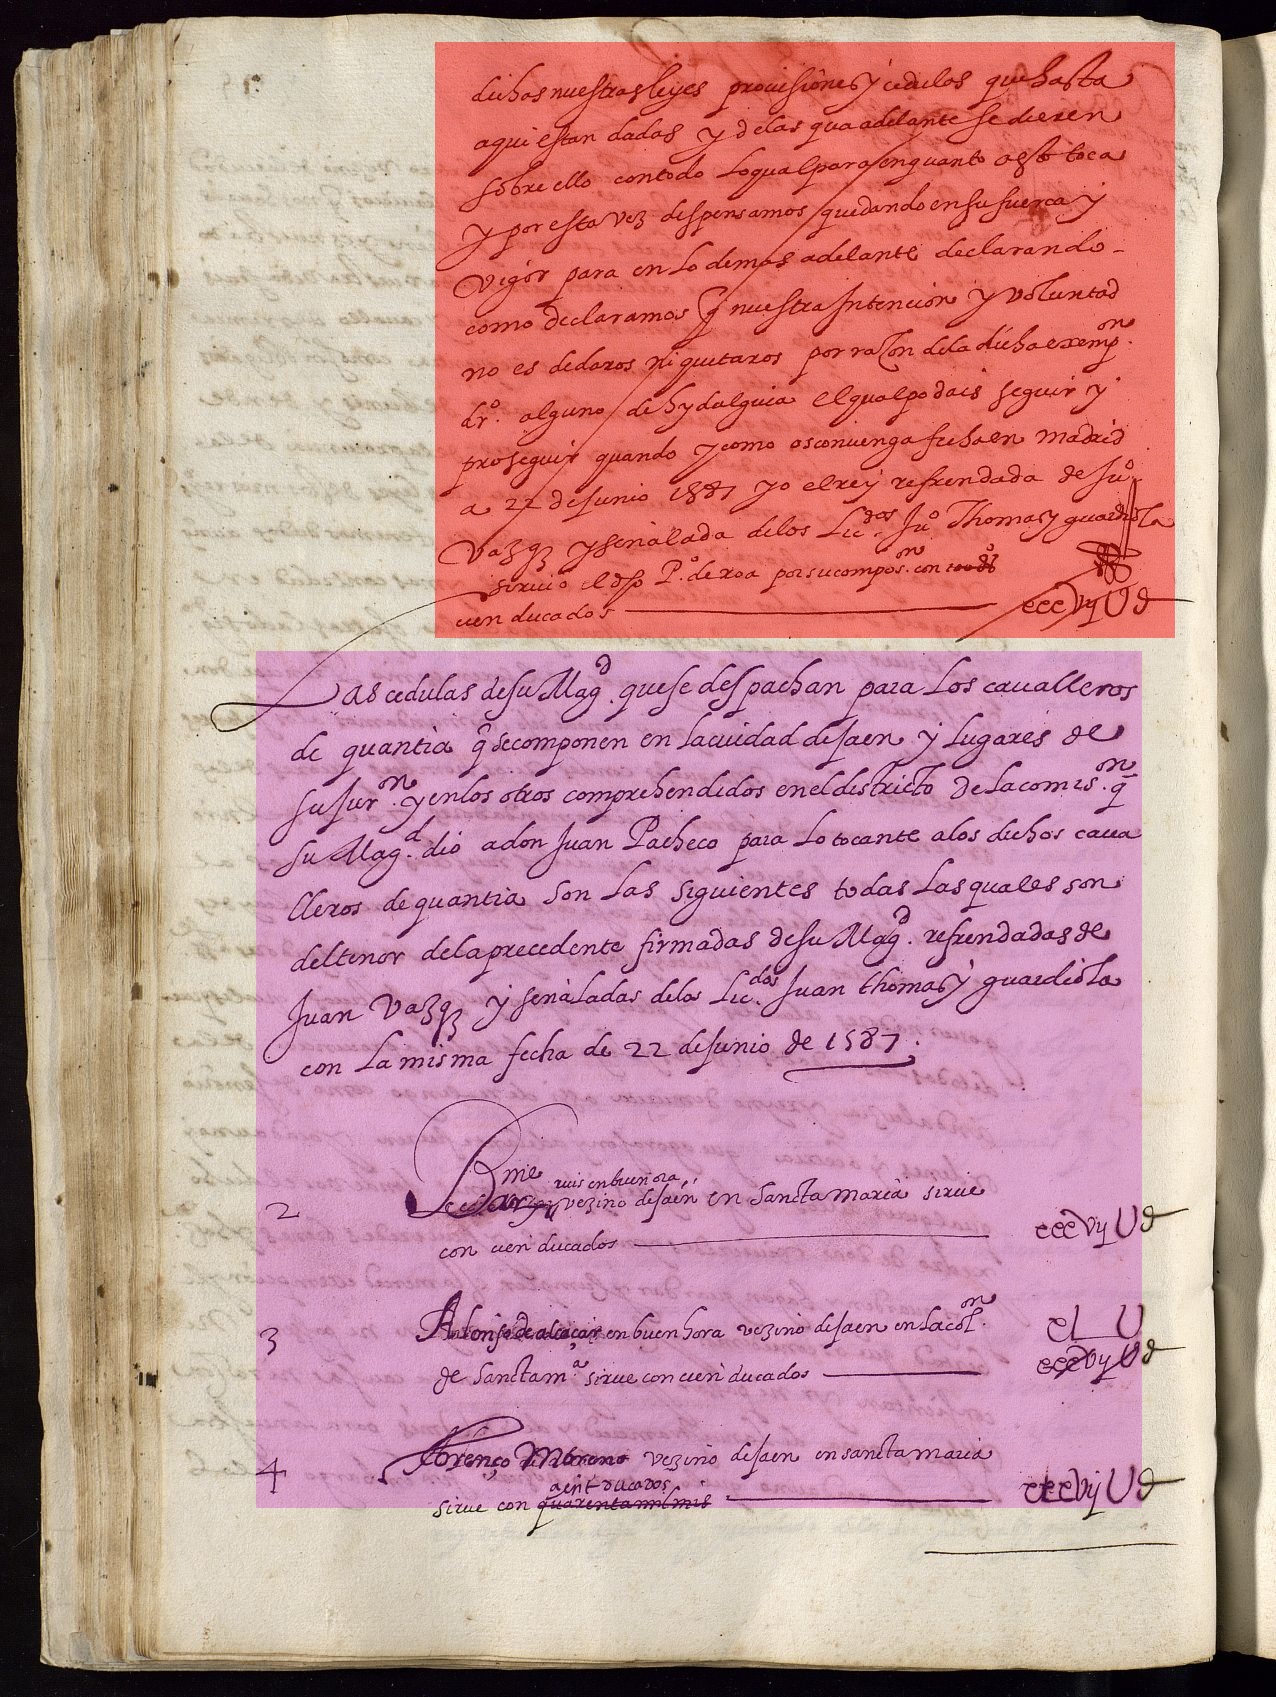 dichas nuestras leyes prouisiones y cedulas que hasta
aqui estan dadas y de las que adelante se dieren
sobre ello con todo lo qual para en quanto a esto toca
y por esta vez dispensamos quedando en su fuerca y
vigor para en lo demas adelante declarando
como declaramos q̃ nuestra Intencion y voluntad
no es de daros ni quitaros por razon de la dicha exempon.
dro. alguno de hydalguia el qual podais seguir y
proseguir quando y como os conuenga fecha en Madrid
a 22 de Junio 1587 yo el rey refrendada de Juo
Vazqz y señalada de los Licdos. Juo Thomas y guardiola
siruio el dho Po. de roa por su compon. con
cien ducados cccVijUd
Las cedulas de su Magd. que se despachan para los caualleros
de quantia q̃ se componen en la ciudad de Jaen y lugares de
su Jurn. y en los otros comprehendidos en el districto de la comison. q̃
su Magd. dio a don Juan Pacheco para lo tocante a los dichos caua
lleros de quantia son las siguientes todas las quales son
del tenor de la precedente firmadas de su Magd. refrendadas de
Juan Vazqz y señaladas de los Licdos. Juan thomas y guardiola
con la misma fecha de 22 de Junio de 1587.
2 Barme ruis en buen ora vezino de Jaen en Sancta maria sirue
con cien ducados cccVijUd
3 Alonso de alcaçar en buen hora vezino de Jaen en la colon. cL U
de Sancta ma. sirue con cien ducados cccVijUd
4 Lorenço Moreno vezino de Jaen en sancta maria
sirue con quarenta mill mrs çient ducados cccVijUd